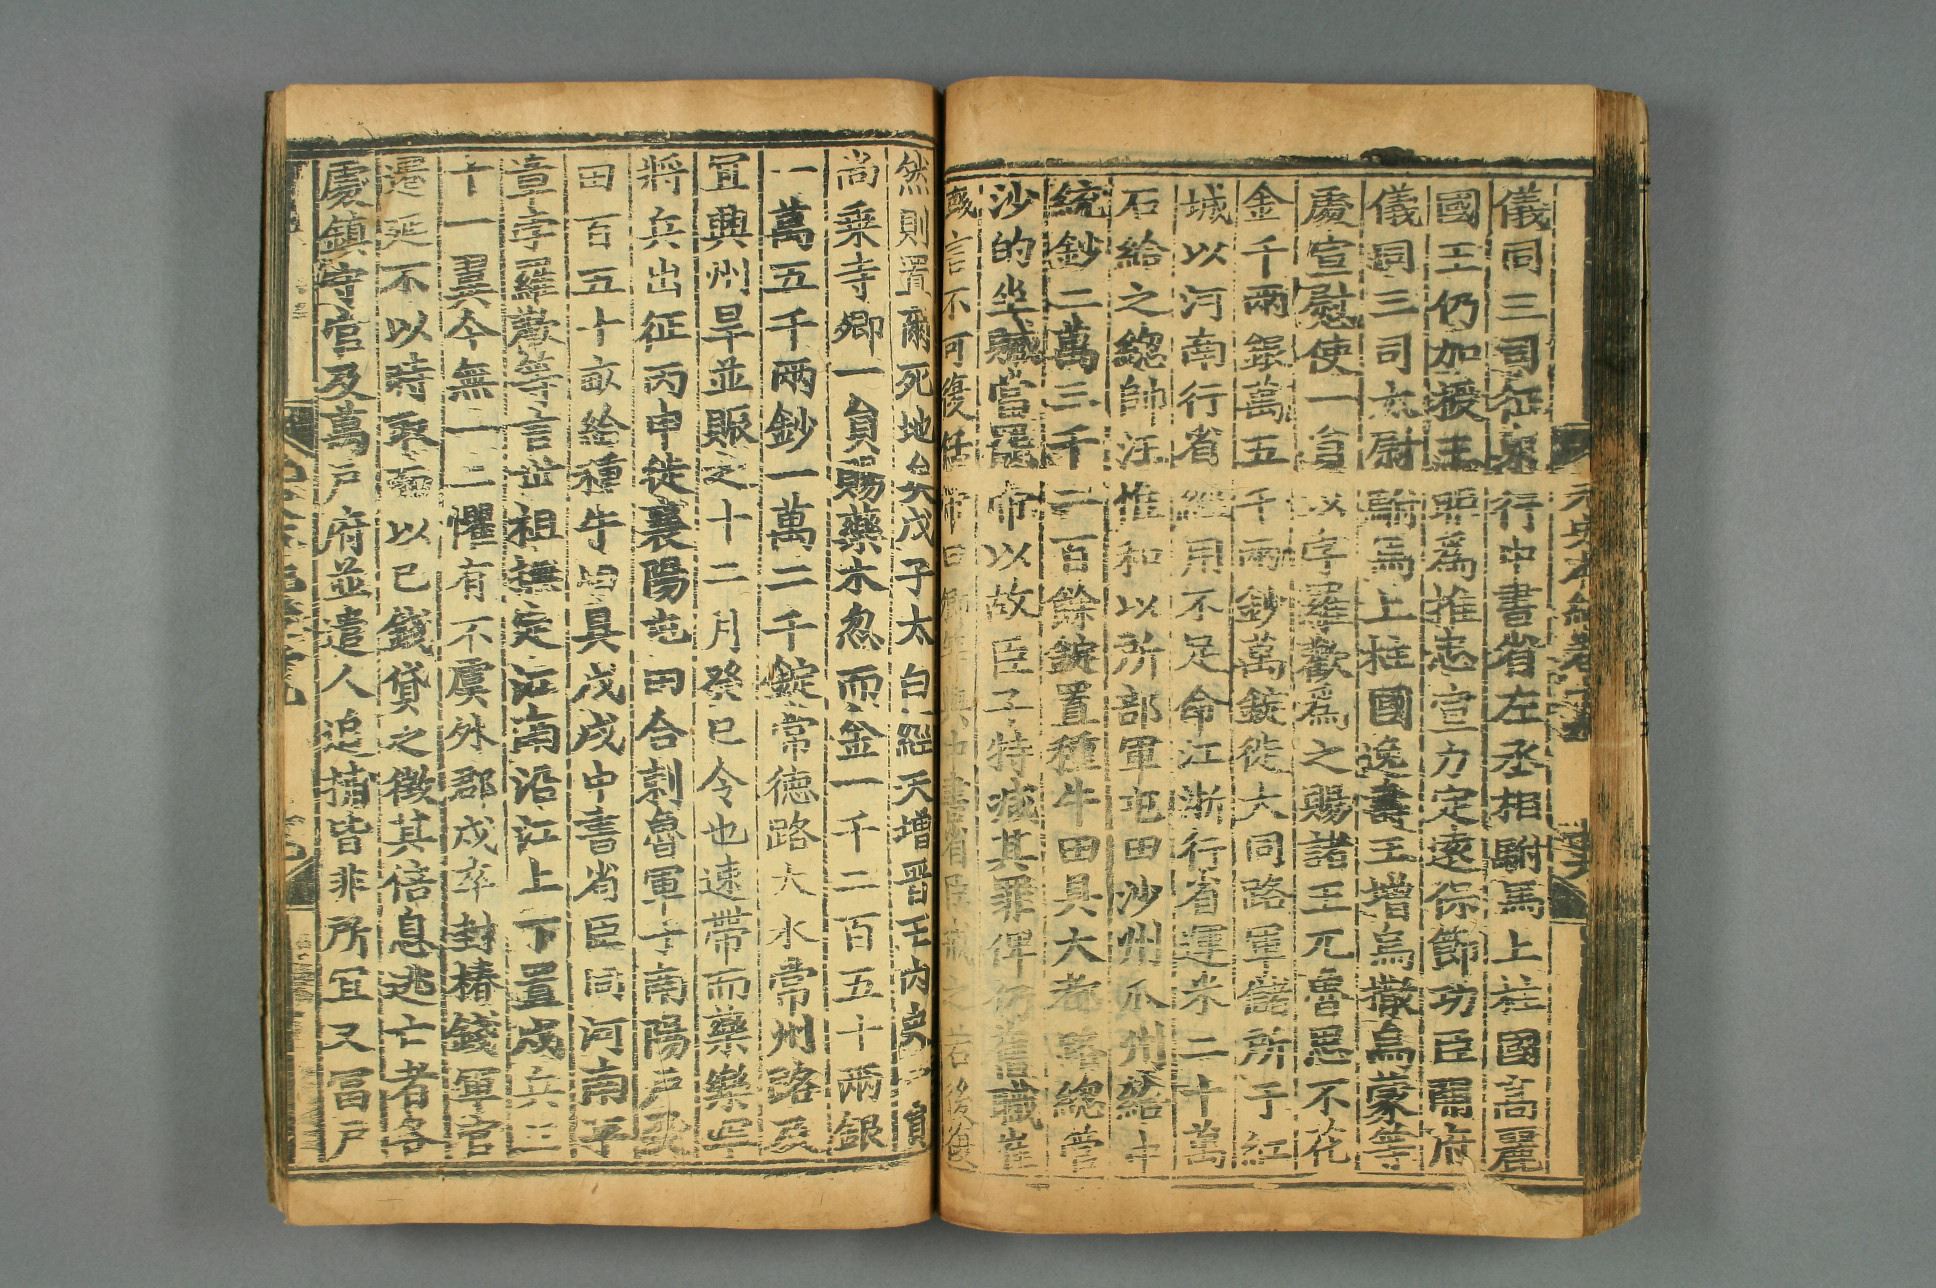 儀同三司征東行中書省左丞相駙馬上柱國高麗
國王仍加授王昛爲推忠宣力定遠保節功臣開府
儀同三司太尉駙馬上柱國逸壽王增烏撒烏蒙等
處宣慰使一員以孛羅歡爲之賜諸王兀魯忽不花
金千兩銀萬五千兩鈔萬錠徙大同路軍儲所于紅
城以河南行省經用不足命江浙行省運米二十萬
石給之總帥汪惟和以所部軍屯田沙州瓜州給中
統鈔二萬三千二百餘錠置種牛田具大都路總管
沙的坐贓當罷帝以故臣子特減其罪俾仍舊職崔
彧言不可復任帝曰卿等與中書省臣戒之若後復
然則置爾死地矣戊子太白經天增晉王內史一員
尚乗寺卿一員賜藥木忽而金一千二百五十兩銀
一萬五千兩鈔一萬二千錠常德路大水常州路及
宜興州旱並賑之十二月癸巳令也速帶而藥樂罕
將兵出征丙申徙襄陽屯田合剌魯軍于南陽戶受
田百五十畝給種牛田具戊戌中書省臣同河南平
章孛羅歡等言世祖撫定江南沿江上下置戍兵三
十一翼今無一二懼有不虞外郡戍卒封樁錢軍官
遷延不以時取而以己錢貸之徵其倍息逃亡者各
處鎮守官及萬戶府並遣人追捕皆非所宜又冨戶